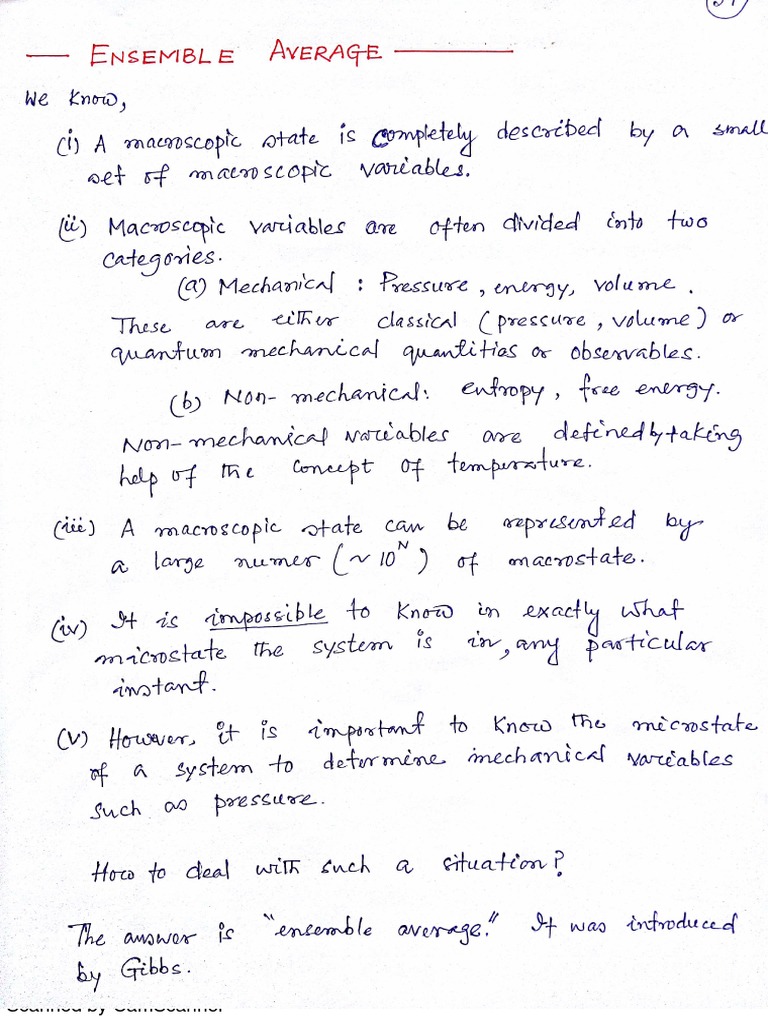 ENSEMBLE AVERAGE
We know,
(i) A macroscopic state is completely described by a small
set of macroscopic variables.
(ii) Macroscopic variables are often divided into two
categories.
(a) Mechanical : Pressure, energy, volume.
These are either classical (pressure, volume) or
quantum mechanical quantities or observables.
(b) Non-mechanical: entropy, free energy.
Non-mechanical variables are defined by taking
help of the concept of temperature.
(iii) A macroscopic state can be represented by
a large numer (~ 10^N) of macrostate.
(iv) It is impossible to know in exactly what
microstate the system is in, any particular
instant.
(v) However, it is important to know the microstate
of a system to determine mechanical variables
such as pressure.
How to deal with such a situation?
The answer is "ensemble average." It was introduced
by Gibbs.